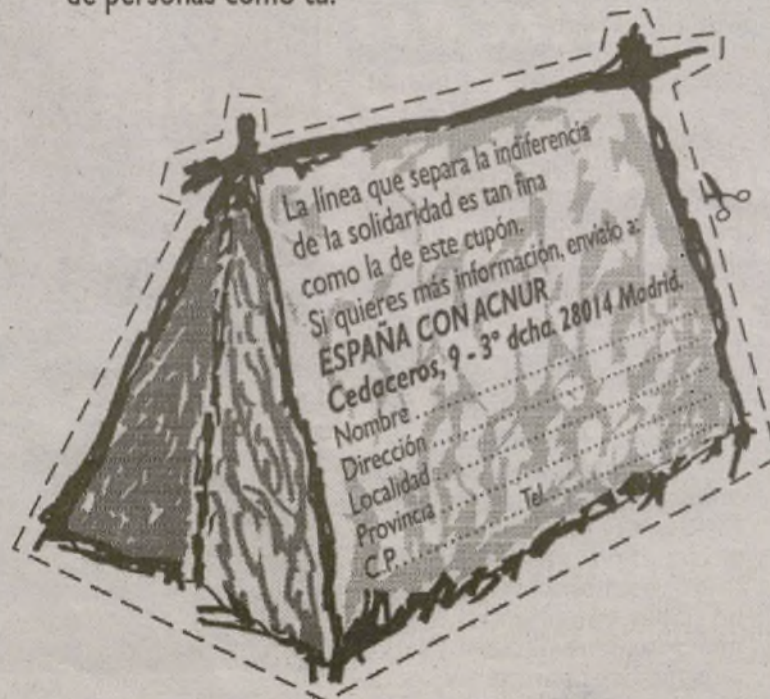 de personas como tú.
La línea que separa la indiferencia
de la solidaridad es tan fina
como la de este cupón.
Si quieres más información, envíalo a:
ESPAÑA CON ACNUR
Cedaceros, 9 - 3º dcha. 28014 Madrid.
Nombre
Dirección
Localidad
Provincia
C.P. Tel.